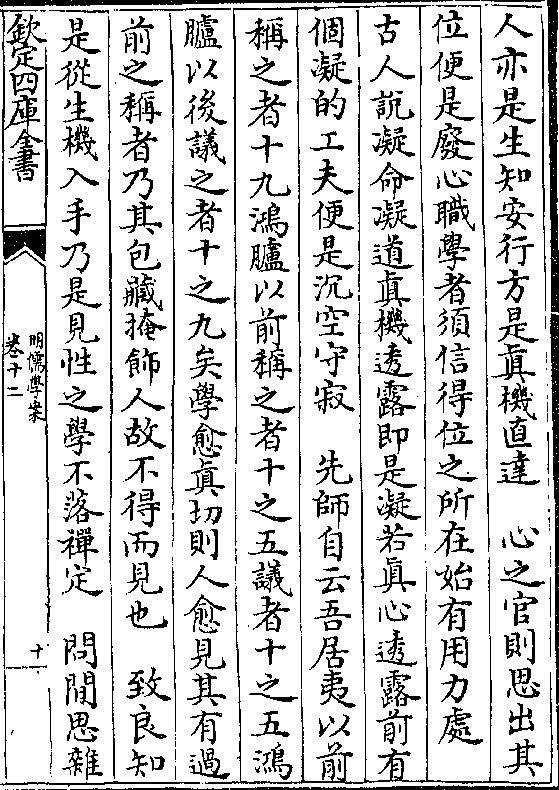 人亦是生知安行方是眞機直達　心之官則思出其
位便是廢心職學者須信得位之所在始有用力處
古人説凝命凝道眞機透露即是凝若眞心透露前有
個凝的工夫便是沉空守寂　先師自云吾居夷以前
稱之者十九鴻臚以前稱之者十之五議者十之五鴻
臚以後議之者十之九矣學愈眞切則人愈見其有過
前之稱者乃其包藏掩飾人故不得而見也　致良知
是從生機入手乃是見性之學不落禪定　問閒思雜
欽定四庫全書
明儒學案
卷十二
十